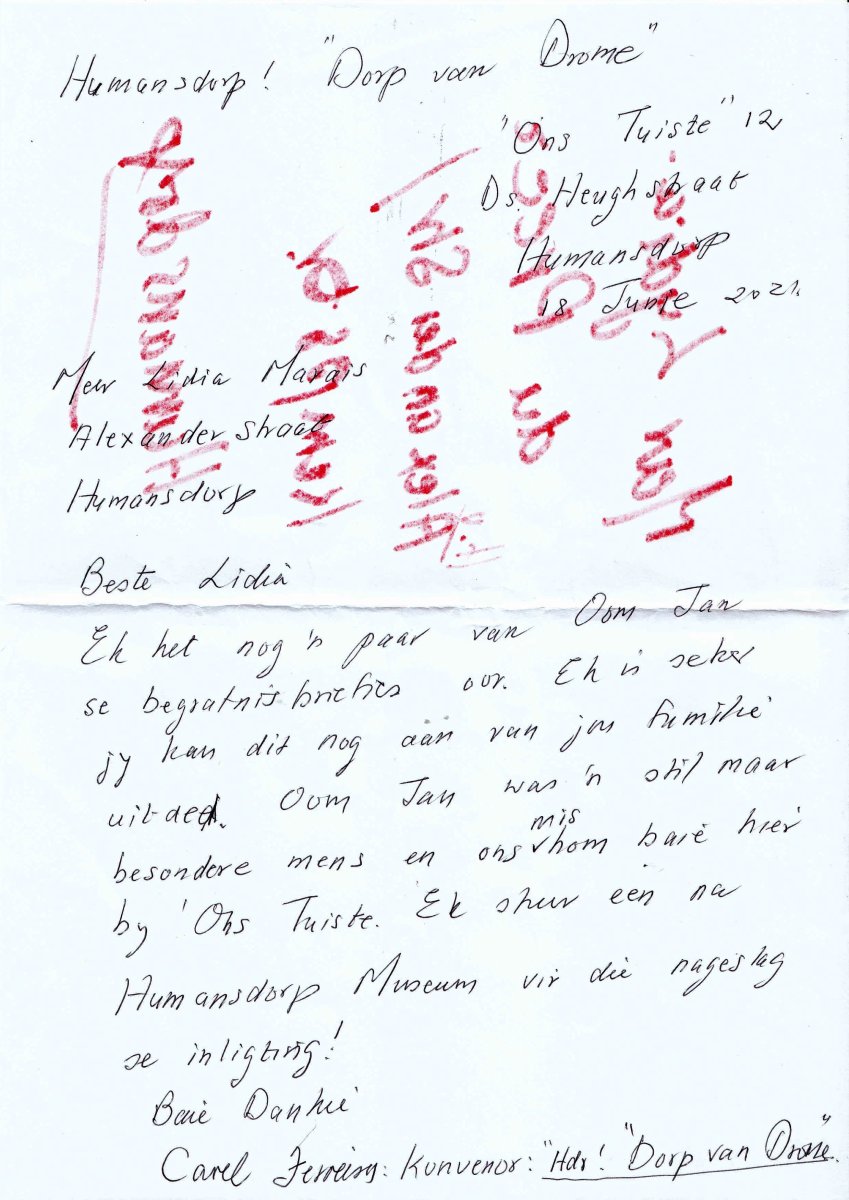 Humansdorp! "Dorp van Drome"
"Ons Tuiste" 12
Ds. Heughstraat
Humansdorp
18 Junie 2021.
Mev Lidia Marais
Alexander Straat
Humansdorp
Beste Lidia
Ek het nog 'n paar van Oom Jan
se begrafnisbriefies oor. Ek is seker
jy kan dit nog aan van jou familie
uitdeel. Oom Jan was 'n stil maar
besondere mens en ons mis hom baie hier
by 'Ons Tuiste. Ek stuur een na
Humansdorp Museum vir die nageslag
se inligting!
Baie Dankie
Carel Ferreira: Konvenor: "Hdr! "Dorp van Drome".